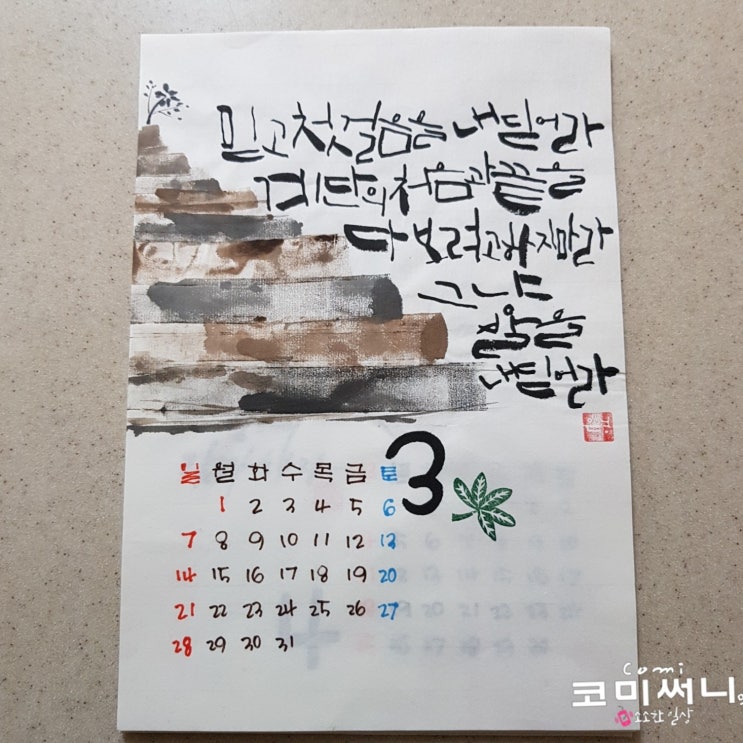 믿고 첫 걸음을 내딛어라
계단의 처음과 끝을
다 보려고 하지마라
그냥
발을
내딛어라
3
일 월 화 수 목 금 토
1 2 3 4 5 6
7 8 9 10 11 12 13
14 15 16 17 18 19 20
21 22 23 24 25 26 27
28 29 30 31
Comi
코미써니
소소한 일상